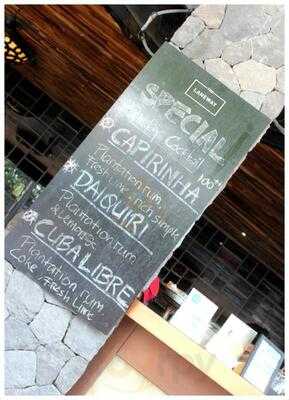 LANEWAY
SPECIAL
Cocktail 100++
CAPIRINHA
Plantation rum,
Fresh lime + rich simple
DAIQUIRI
Plantation rum
& Lemoness
CUBA LIBRE
Plantation rum
Coke + Fresh Lime